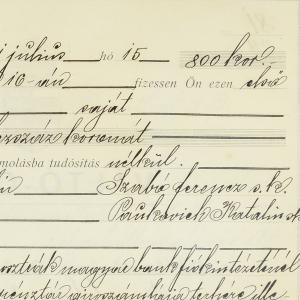 julius hó 15 800 kor.
16-án fizessen Ön ezen első
saját
száz koronát
molásba tudósítás nélkül.
Szabó Ferencz s.k.
Paukovich Katalin s.k.
osztrák magyar bank fiókintézeténél
terhére